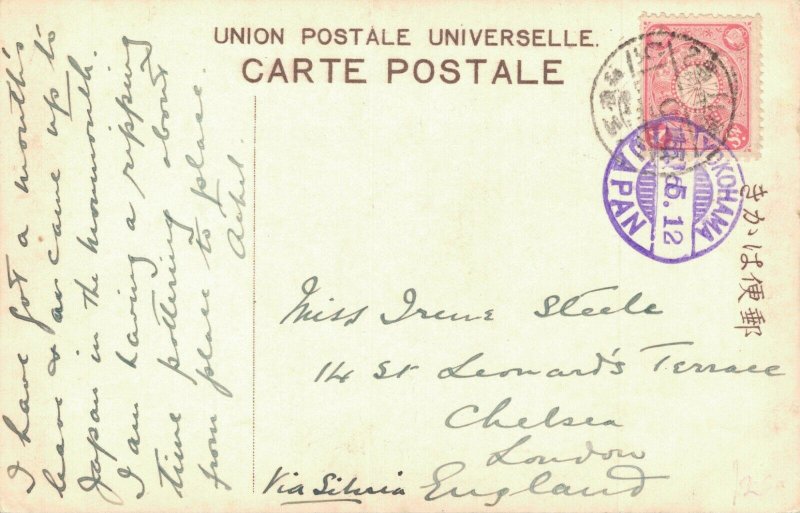 UNION POSTALE UNIVERSELLE.
CARTE POSTALE
I have got a month's
leave & am came up to
Japan in the Monmouth.
I am having a ripping
time pottering about
from place to place.
YOKOHAMA
5.12
JAPAN
きかは便郵
Miss Irene Steele
14 St Leonard's Terrace
Chelsea
London
England
Via Siberia